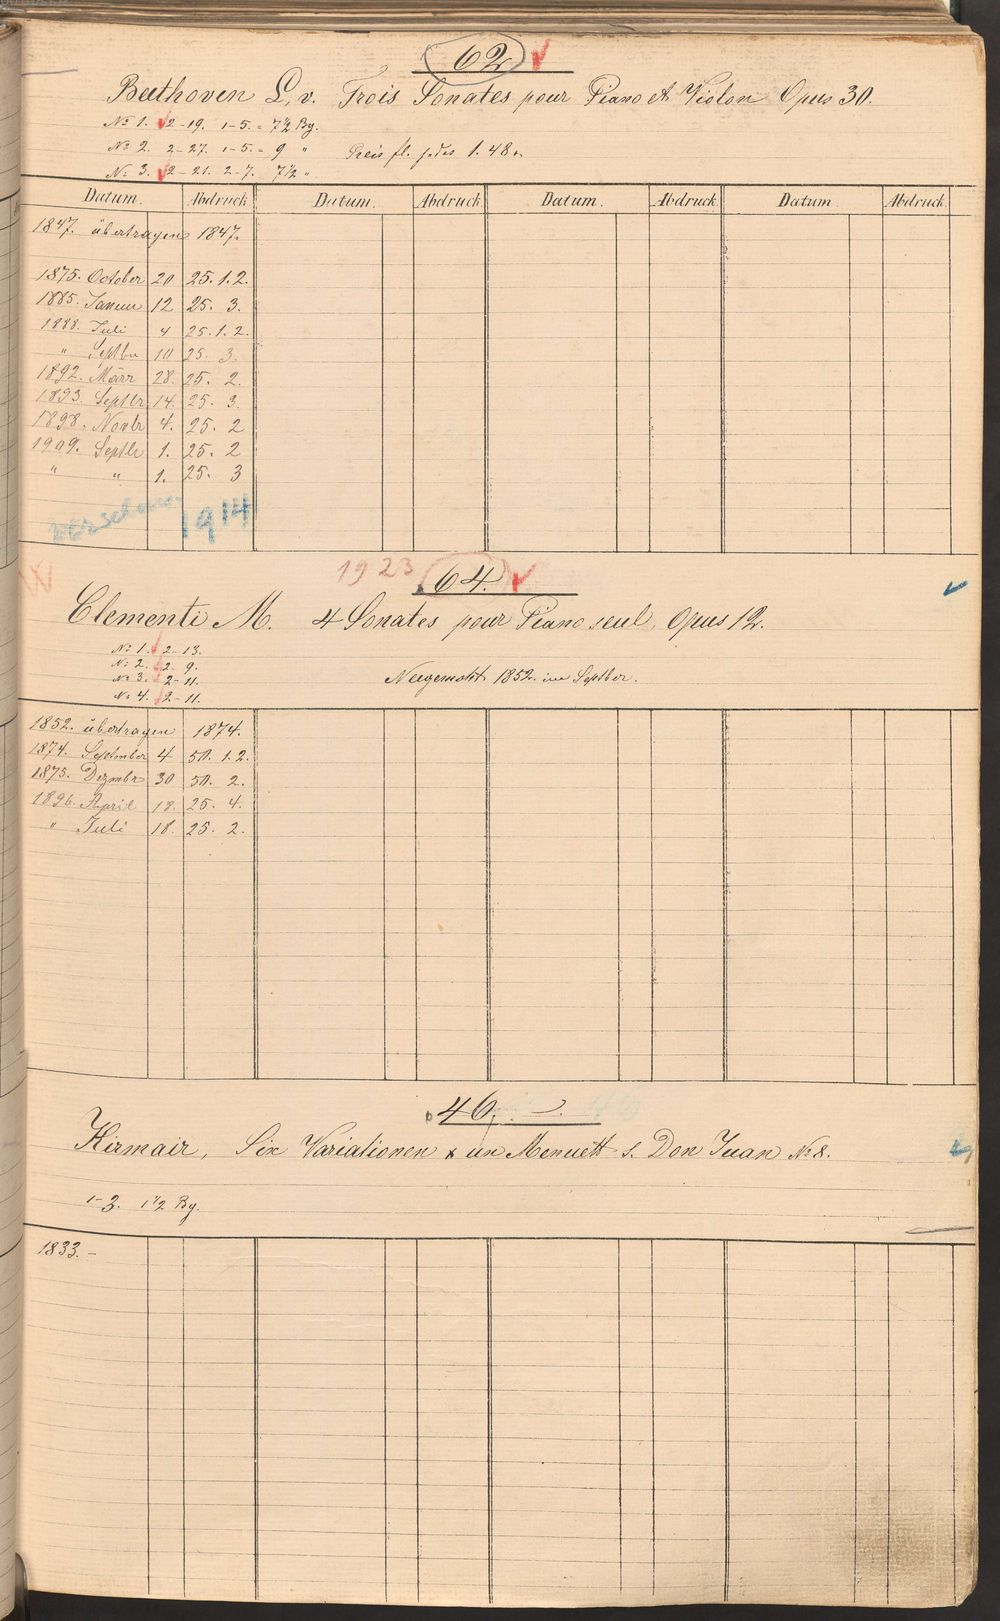 62
Beethoven L. v. Trois Sonates pour Piano et Violon Opus 30.
No 1. 2-19. 1-5. = 7 1/2 Bg.
No 2. 2-27. 1-5. = 9 "
Preis fl. jedes 1.48
No 3. 2-21. 2-7. 7 1/2 "
Datum. Abdruck Datum. Abdruck Datum. Abdruck Datum. Abdruck
1847. übertragen 1847.
1875. October 20 25. 1.2.
1885. Januar 12 25. 3.
1888. Juli 4 25. 1.2.
" Septbr 10 25. 3.
1892. März 28. 25. 2.
1893. Septbr 14. 25. 3.
1898. Novbr 4. 25. 2
1909. Septbr 1. 25. 2
" " 1. 25. 3
1914
1923
64.
Clementi M. 4 Sonates pour Piano seul, Opus 12.
No 1. 2-13.
No 2. 2-9.
No 3. 2-11.
Neugemacht 1852. im Septbr.
No 4. 2-11.
1852. übertragen 1874.
1874. September 4 50. 1.2.
1875. Dezmbr 30 50. 2.
1896. April 18. 25. 4.
" Juli 18. 25. 2.
46.
Kirmair, Six Variationen x un Menuett s. Don Juan No 8.
1-3. 1 1/2 Bg.
1833. -